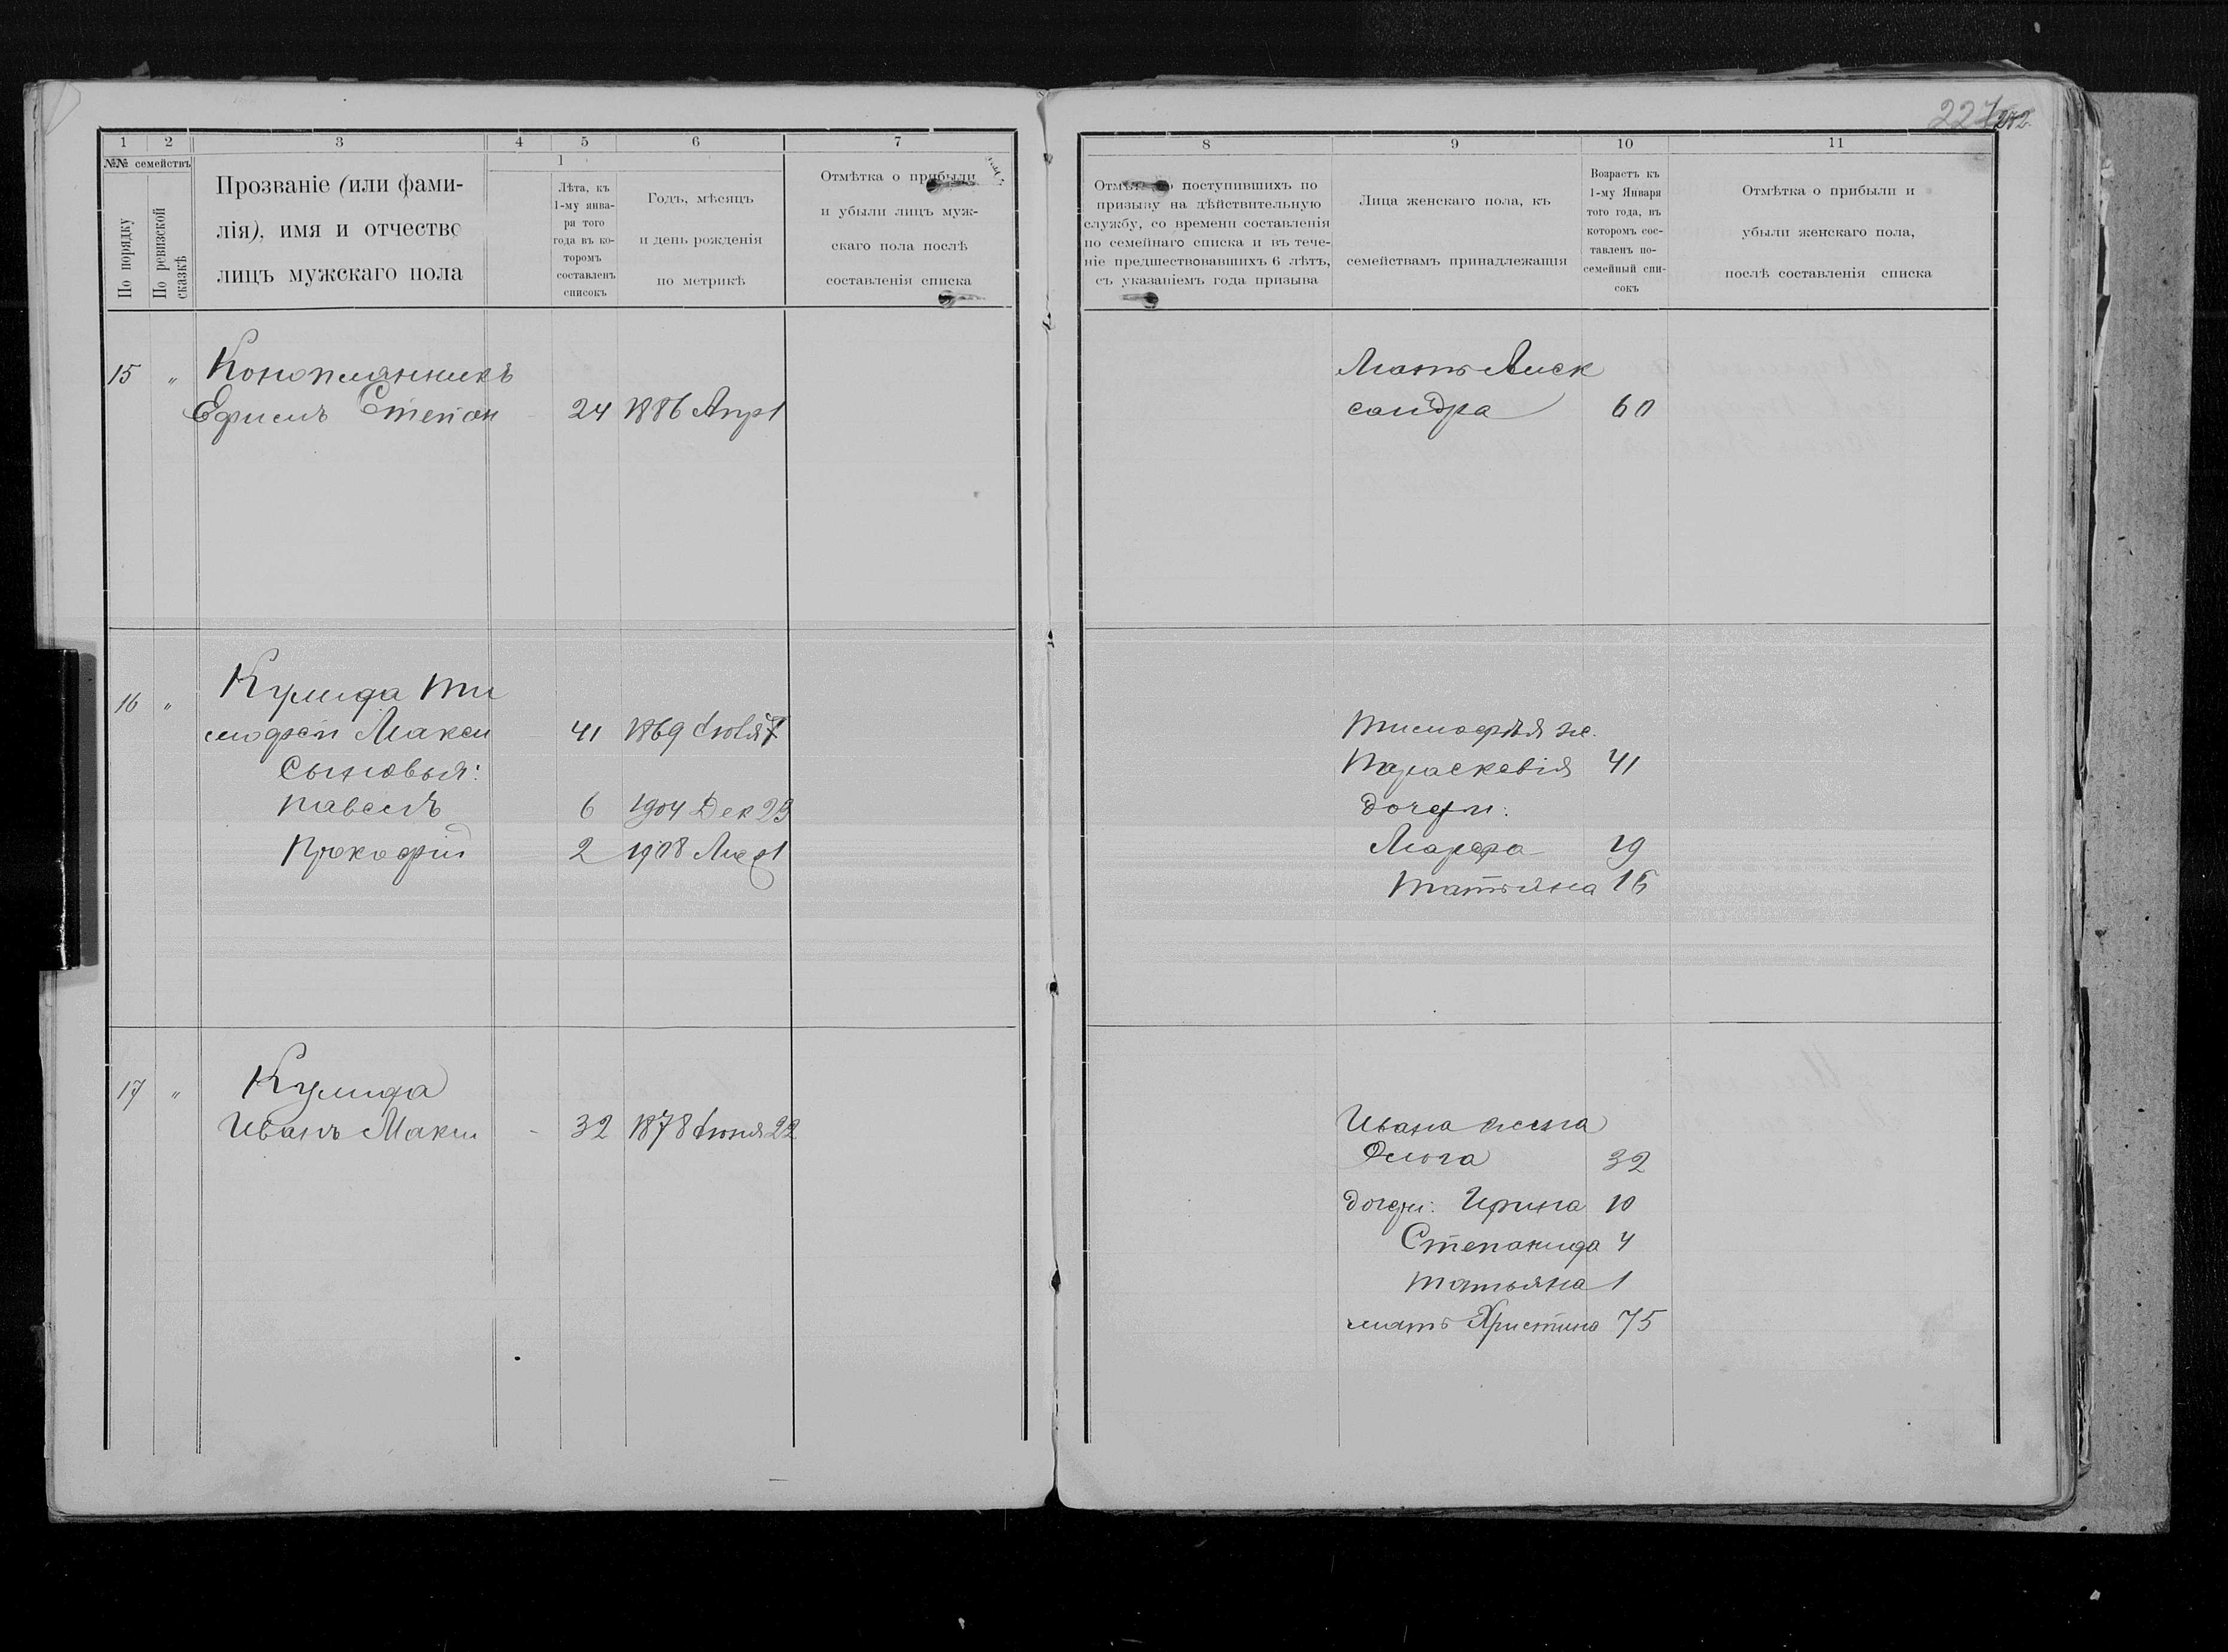 227 242.
1 2 3 4 5 6 7
№№ семействъ
По порядку
По ревизской сказкѣ
Прозваніе (или фами-
лія), имя и отчество
лицъ мужскаго пола
1
Лѣта, къ
1-му янва-
ря того
года въ ко-
торомъ
составленъ
списокъ
Годъ, мѣсяцъ
и день рожденія
по метрикѣ
Отмѣтка о прибыли
и убыли лицъ муж-
скаго пола послѣ
составленія списка
15 „ Конопляникъ
Ефимъ Степан - 24 1886 Апр 1
16 „ Кулида Ти
мофей Макси - 41 1869 Іюля
Сыновья:
Павелъ 6 1904 Дек 23
Прокофій 2 1908
17 „ Кулида
Иванъ Макси - 32 1878 Іюня 22
8 9 10 11
поступившихъ по
призыву на дѣйствительную
службу, со времени составленія
по семейнаго списка и въ тече-
ніе предшествовавшихъ 6 лѣтъ,
съ указаніемъ года призыва
Лица женскаго пола, къ
семействамъ принадлежащія
Возрастъ къ
1-му Января
того года, въ
которомъ сос-
тавленъ по-
семейный спи-
сокъ
Отмѣтка о прибыли и
убыли женскаго пола,
послѣ составленія списка
Мать Алек
сандра 60
Тимофѣя ж.
Параскевія 41
дочери:
Марфа 19
Татьяна 16
Ивана жена
Ольга 32
дочери: Ирина 10
Степанида 4
Татьяна 1
мать Христина 75